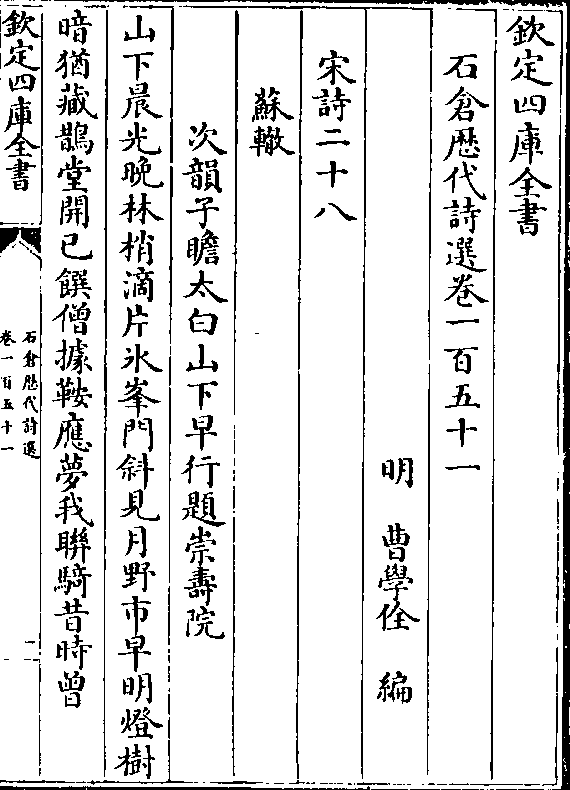 欽定四庫全書
石倉歴代詩選卷一百五十一
明 曹學佺 編
宋詩二十八
蘇轍
次韻子瞻太白山下早行題崇壽院
山下晨光晚林梢滴片氷峯門斜見月野市早明燈樹
暗猶藏鵲堂開已饌僧據鞍應夢我聯騎昔時曾
欽定四庫全書
石倉歴代詩選
卷一百五十一
一